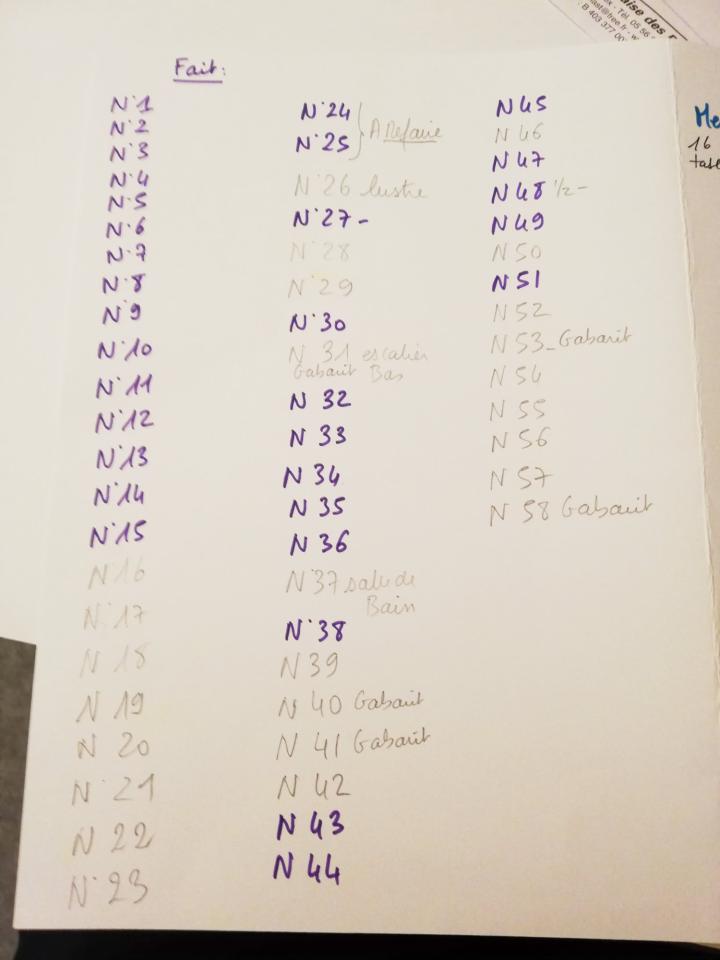 aise des
Tél. 05 56
fast@free.fr - w
B 403 377 00
Fait:
N°1
N°2
N°3
N°4
N°5
N°6
N°7
N°8
N°9
N°10
N°11
N°12
N°13
N°14
N°15
N°16
N°17
N 18
N 19
N 20
N°21
N 22
N°23
N°24
N°25
A Refaire
N°26 lustre
N°27 -
N°28
N°29
N°30
N 31 escalier
Gabarit Bas
N 32
N 33
N 34
N 35
N 36
N°37 salle de
Bain
N°38
N 39
N 40 Gabarit
N 41 Gabarit
N 42
N 43
N 44
N 45
N 46
N 47
N 48 1/2 -
N 49
N 50
N 51
N 52
N 53 - Gabarit
N 54
N 55
N 56
N 57
N 58 Gabarit
Me
16